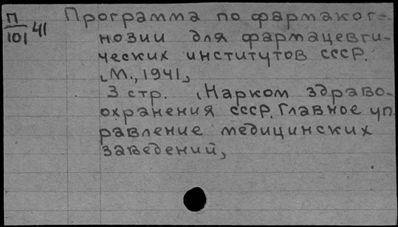 П/101 41 Программа по фармаког-
нозии для фармацевти-
ческих институтов СССР.
[М., 1941]
3 стр. [Нарком здраво-
охранения СССР. Главное уп-
равление медицинских
заведений]